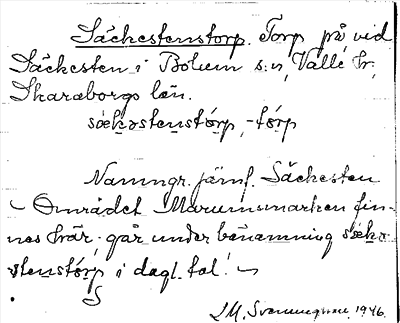 Säckestenstorp. Torp på vid
Säckesten i Bolum s:n, Valle hr,
Skaraborgs län.
sækəstenstórp, -tórp
Namngr. jämf. Säckesten
– Området Marumsmarken fin-
nes här. går under benämning sækə-
stenstórp i dagl. tal! –
S
J.M. 1946.